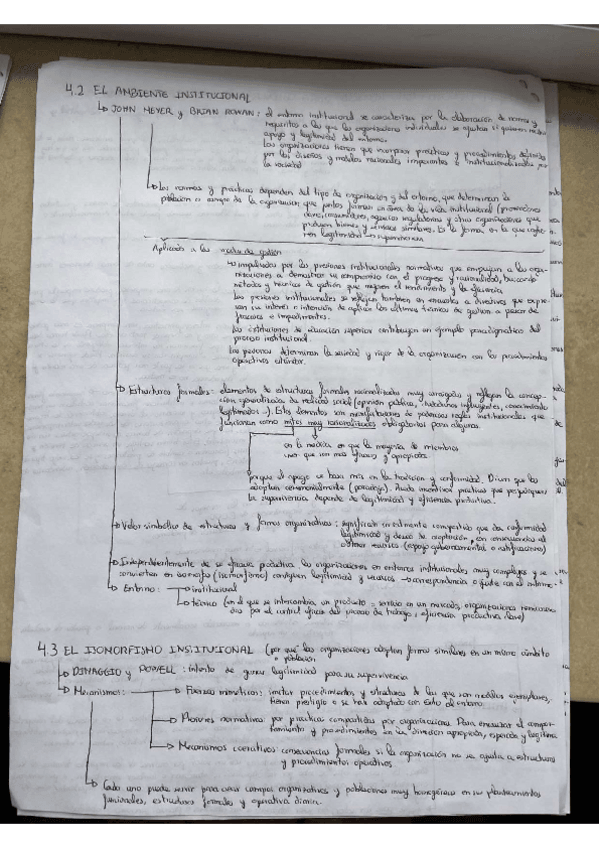 4.2 EL AMBIENTE INSTITUCIONAL
↳ JOHN MEYER y BRIAN ROWAN: el entorno institucional se caracteriza por la elaboración de normas y
requisitos a los que las organizaciones individuales se ajustan si quieren recibir
apoyo y legitimidad del entorno.
Las organizaciones tienen que incorporar prácticas y procedimientos definidos
por los diseños y modelos racionales imperantes e institucionalizados por
la sociedad
Las normas y prácticas dependen del tipo de organización y del entorno, que determinan la
población o campo de la organización que juntos forman un área de la vida institucional (proveedores
clave, consumidores, agencias reguladoras y otras organizaciones que
producen bienes y servicios similares. Es la forma en la que
legitimidad supervivencia
Aplicado a las de gestión
↳ impulsados por las presiones institucionales normativas que empujan a las orga-
nizaciones a demostrar su compromiso con el progreso y racionalidad, buscando
métodos y técnicas de gestión que mejoren el rendimiento y la eficiencia.
Las presiones institucionales se reflejan también en encuestas a directivos que expre-
san su interés e intención de aplicar las últimas técnicas de gestión a pesar de
fracasos e impedimentos.
Las instituciones de educación superior contribuyen un ejemplo paradigmático del
proceso institucional.
Las determinan la seriedad y rigor de la organización con los procedimientos
operativos
Estructuras formales: elementos de estructuras formales racionalizadas muy arraigados y reflejan la concep-
ción generalizada de realidad social (opinión pública, ciudadanos influyentes, conocimiento
legitimado...). Estos elementos son manifestaciones de poderosas reglas institucionales que
funcionan como mitos muy racionalizados obligatorios para algunas.
en la medida en que la mayoría de miembros
creer que son más eficaces y apropiados.
porque el apoyo se basa más en la tradición y conformidad. Dicen que los
adoptan ceremonialmente. incentivos prácticos que
la supervivencia depende de legitimidad y eficiencia productiva.
Valor simbólico de estructuras y formas organizativas: significado socialmente compartido que da conformidad
legitimidad y desea la aceptación, con consecuencias al
obtener recursos (apoyo gubernamental o ratificaciones)
Independientemente de su eficacia productiva las organizaciones en entornos institucionales muy complejos y se
convierten en isomorfas (isomorfismo) consiguen legitimidad y recursos → correspondencia o ajuste con el entorno
Entorno: → institucional
↳ técnico (en el que se intercambia un producto o servicio en un mercado, organizaciones
por el control eficaz del proceso de trabajo, eficiencia productiva clave)
4.3 EL ISOMORFISMO INSTITUCIONAL (por qué las organizaciones adoptan formas similares en un mismo ámbito
o población
↳ DIMAGGIO y POWELL: intento de ganar legitimidad para su supervivencia
↳ Mecanismos: Fuerzas miméticas: imitar procedimientos y estructuras de las que son modelos ejemplares,
tienen prestigio o se han adaptado con éxito al entorno.
Presiones normativas por prácticas compartidas por organizaciones. Para encauzar el compor-
tamiento y procedimientos en una dirección apropiada, esperada y legítima
Mecanismos coercitivos: consecuencias formales si la organización no se ajusta a estructuras
y procedimientos operativos
Cada uno puede servir para crear campos organizativos y poblaciones muy homogéneas en sus planteamientos
funcionales, estructuras formales y operativa diaria.